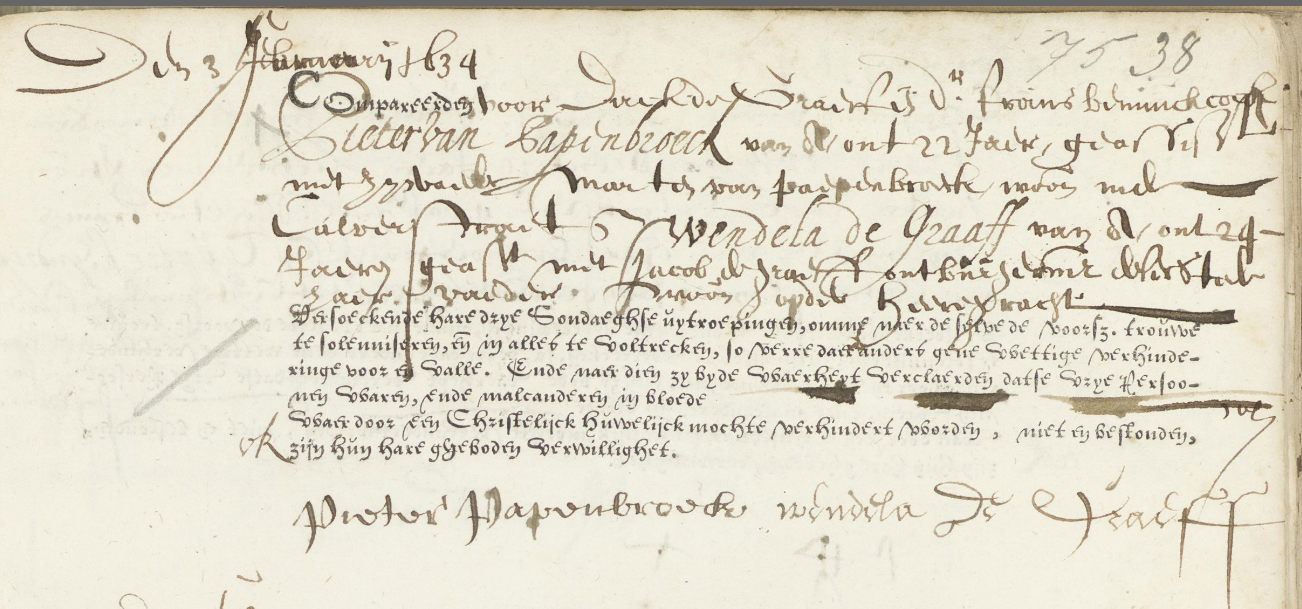 75 38
Den 3 februarij 1634
Compareerden voor Dirck de Graeff en Dr. frans benninck cock
Pieter van Papenbroeck van A, out 22 Jaer, geassis
met zijn vader Marten van papenbroek, woon inde
Calverstraet & Wendela de Graaff van A, out 24
Jaeren geasst met Jacob de Graeff out burgermr deser stede
haer vader, woon op de heeregracht
Versoeckende hare drye Sondaeghse uytroepingen, omme naer de selve de voorsz. trouwe
te solemniseren, en in alles te voltrecken, so verre daer anders gene wettige verhinde-
ringe voor en valle. Ende naer dien zy byde waerheyt verclaerden datse vrye Persoo-
nen waren, ende malcanderen in bloede
waer door een Christelijck Huwelijck mochte verhindert worden, niet en bestonden,
zijn hun hare gheboden verwillighet.
Pieter Papenbroeck wendela de Graeff